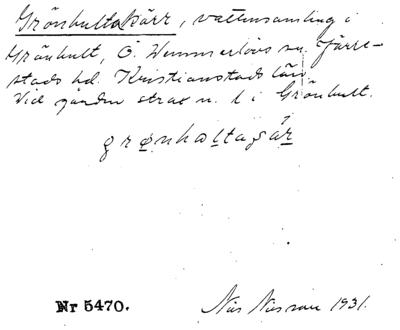 Grönhultakärr, vattensamling i
Grönhult, Ö. Vemmerlövs sn. Järre-
stads hd. Kristianstads län.
Vid gården strax n. l i Grönhult.
grønhaltagár
Nr 5470.
Nils 1931.